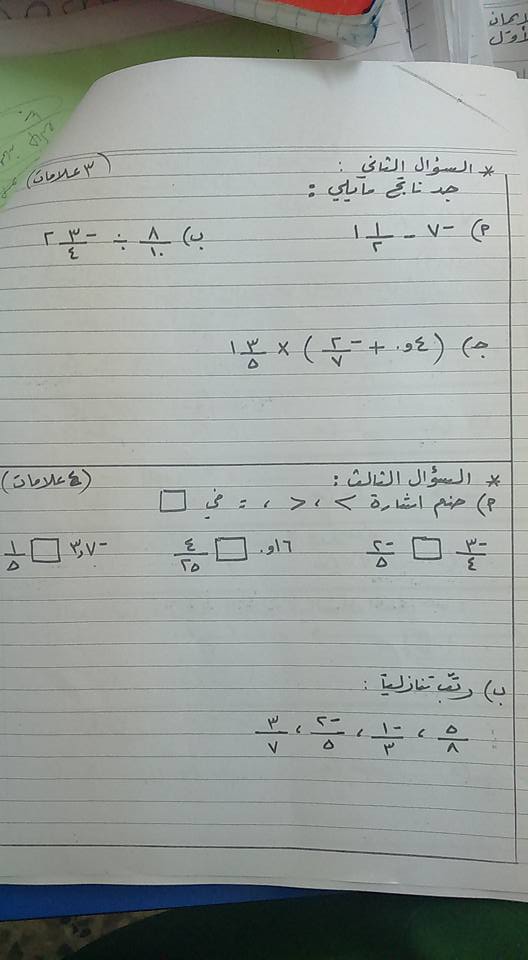 الايمان
الأول
* السؤال الثاني : (٣ علامات)
جد ناتج مايلي :
أ) -٧ - ١ ١/٢ ب) ٨/١٠ ÷ -٣/٤ ٢
ج) (٤و٠ + -٢/٧) × ١ ٣/٥
* السؤال الثالث : (٤ علامات)
أ) ضع اشارة > ، < ، = في □
-٣/٤ □ -٢/٥ ١٦و٠ □ ٤/٢٥ -٣,٧ □ ١/٥
ب) رتّب تنازلياً :
٥/٨ ، -١/٣ ، -٢/٥ ، ٣/٧